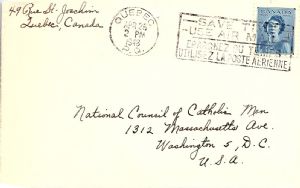 49 Rue St-Joachim
Quebec, Canada
QUEBEC
PM
1948
P.Q.
SAVE TIME
USE AIR MAIL
DU TEMPS
UTILISEZ LA POSTE AÉRIENNE
CANADA
National Council of Catholic Men
1312 Massachusetts Ave.
Washington 5, D.C.
U.S.A.